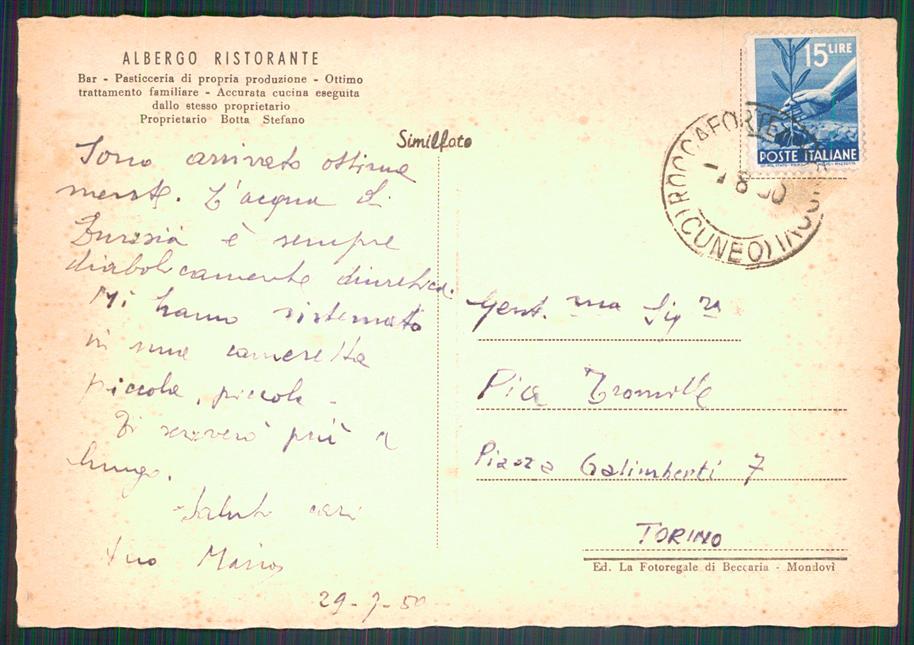 ALBERGO RISTORANTE
Bar - Pasticceria di propria produzione - Ottimo
trattamento familiare - Accurata cucina eseguita
dallo stesso proprietario
Proprietario Botta Stefano
Similfoto
Sono arrivato ottima
mente. L'acqua di
Lurisia è sempre
diabolicamente diuretica.
Mi hanno sistemato
in una cameretta
piccola, piccola -
Ti scriverò più a
lungo.
Saluti cari
tuo Marios
29-7-50
15 LIRE
POSTE ITALIANE
ROCCAFORTE
(CUNEO)
8 50
Gent.ma Sig.ra
Pia
Piazza Galimberti 7
TORINO
Ed. La Fotoregale di Beccaria - Mondovì